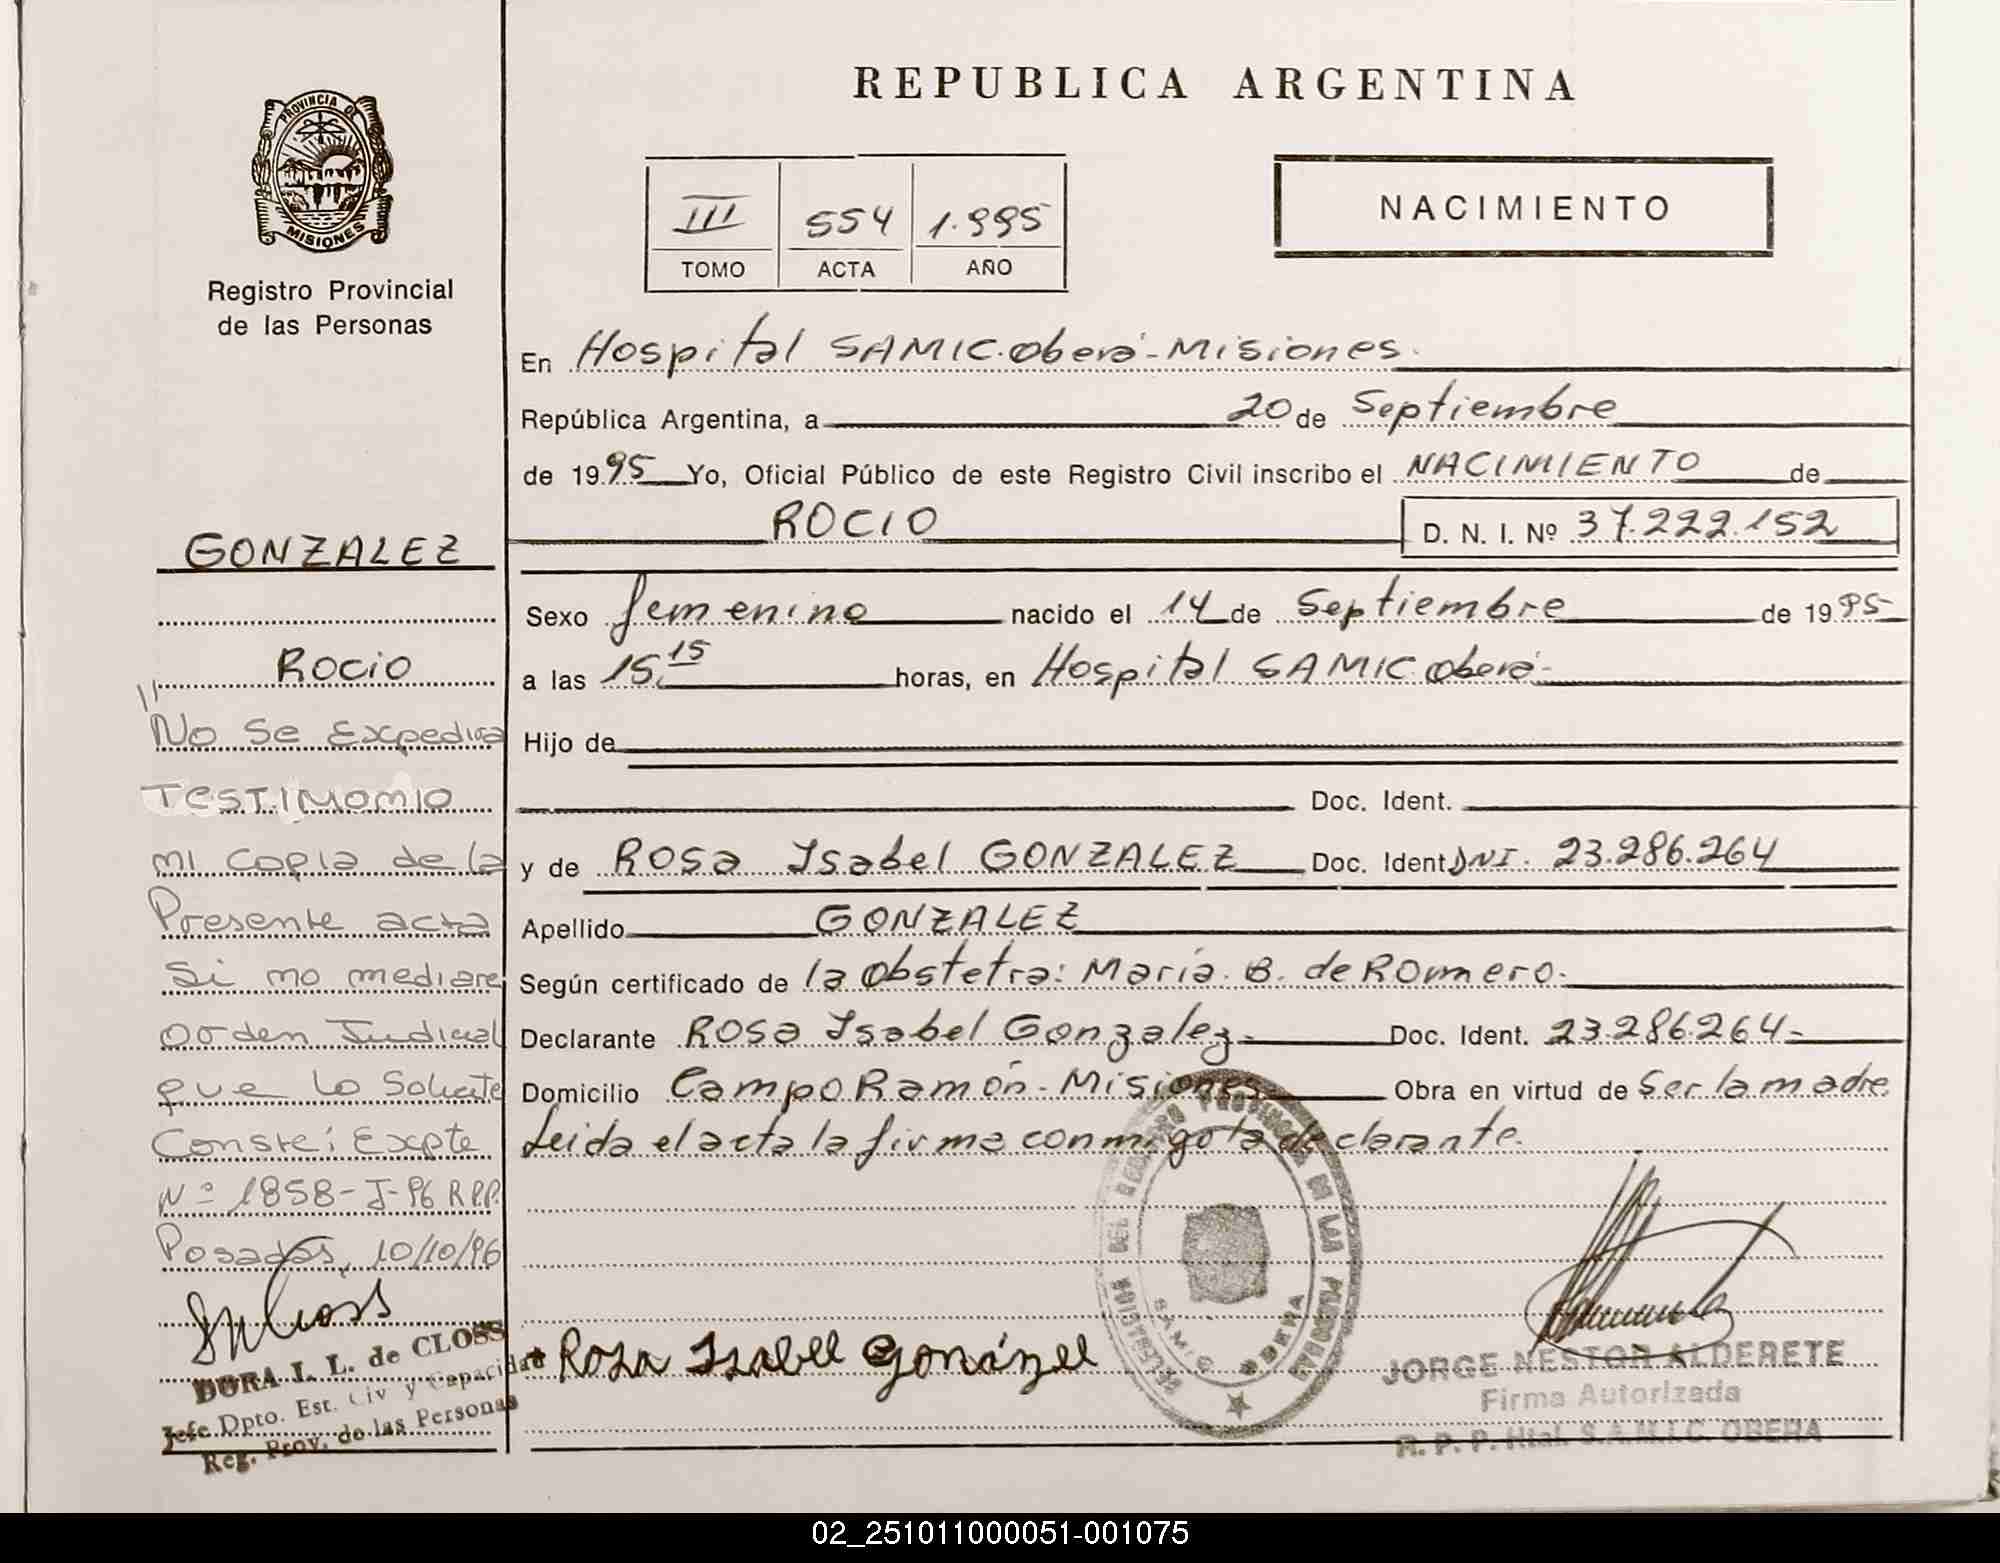 PROVINCIA DE
MISIONES
Registro Provincial
de las Personas
GONZALEZ
ROCIO
"No se Expedira
TESTIMOMIO
mi copia de la
Presente acta
si mo mediare
orden Judicial
que lo Solicite
Conste: Expte
Nº 1858-J-96 R.P.P.
Posadas, 10/10/96
DORA I. L. de CLOSS
Jefe Dpto. Est. Civ y Capacidad
Reg. Prov. de las Personas
REPUBLICA ARGENTINA
III 554 1.995
TOMO ACTA AÑO
NACIMIENTO
En Hospital SAMIC. Oberá-Misiones.
República Argentina, a 20 de Septiembre
de 1995 Yo, Oficial Público de este Registro Civil inscribo el NACIMIENTO de
ROCIO D. N. I. Nº 37.222.152
Sexo femenino nacido el 14 de Septiembre de 1995
a las 15.15 horas, en Hospital SAMIC Oberá-
Hijo de
Doc. Ident.
y de ROSA Isabel GONZALEZ Doc. Ident DNI. 23.286.264
Apellido GONZALEZ
Según certificado de la Obstetra: María B. de ROmero.
Declarante ROSA Isabel Gonzalez- Doc. Ident. 23.286.264-
Domicilio Campo Ramón-Misiones Obra en virtud de Ser la madre
Leida el acta la firma conmigo la declarante.
Rosa Isabel Gonzalez
S.A.M.I.C. OBERA
JORGE NESTOR ALDERETE
Firma Autorizada
R. P. P. Htal. S.A.M.I.C. OBERA
02_251011000051-001075